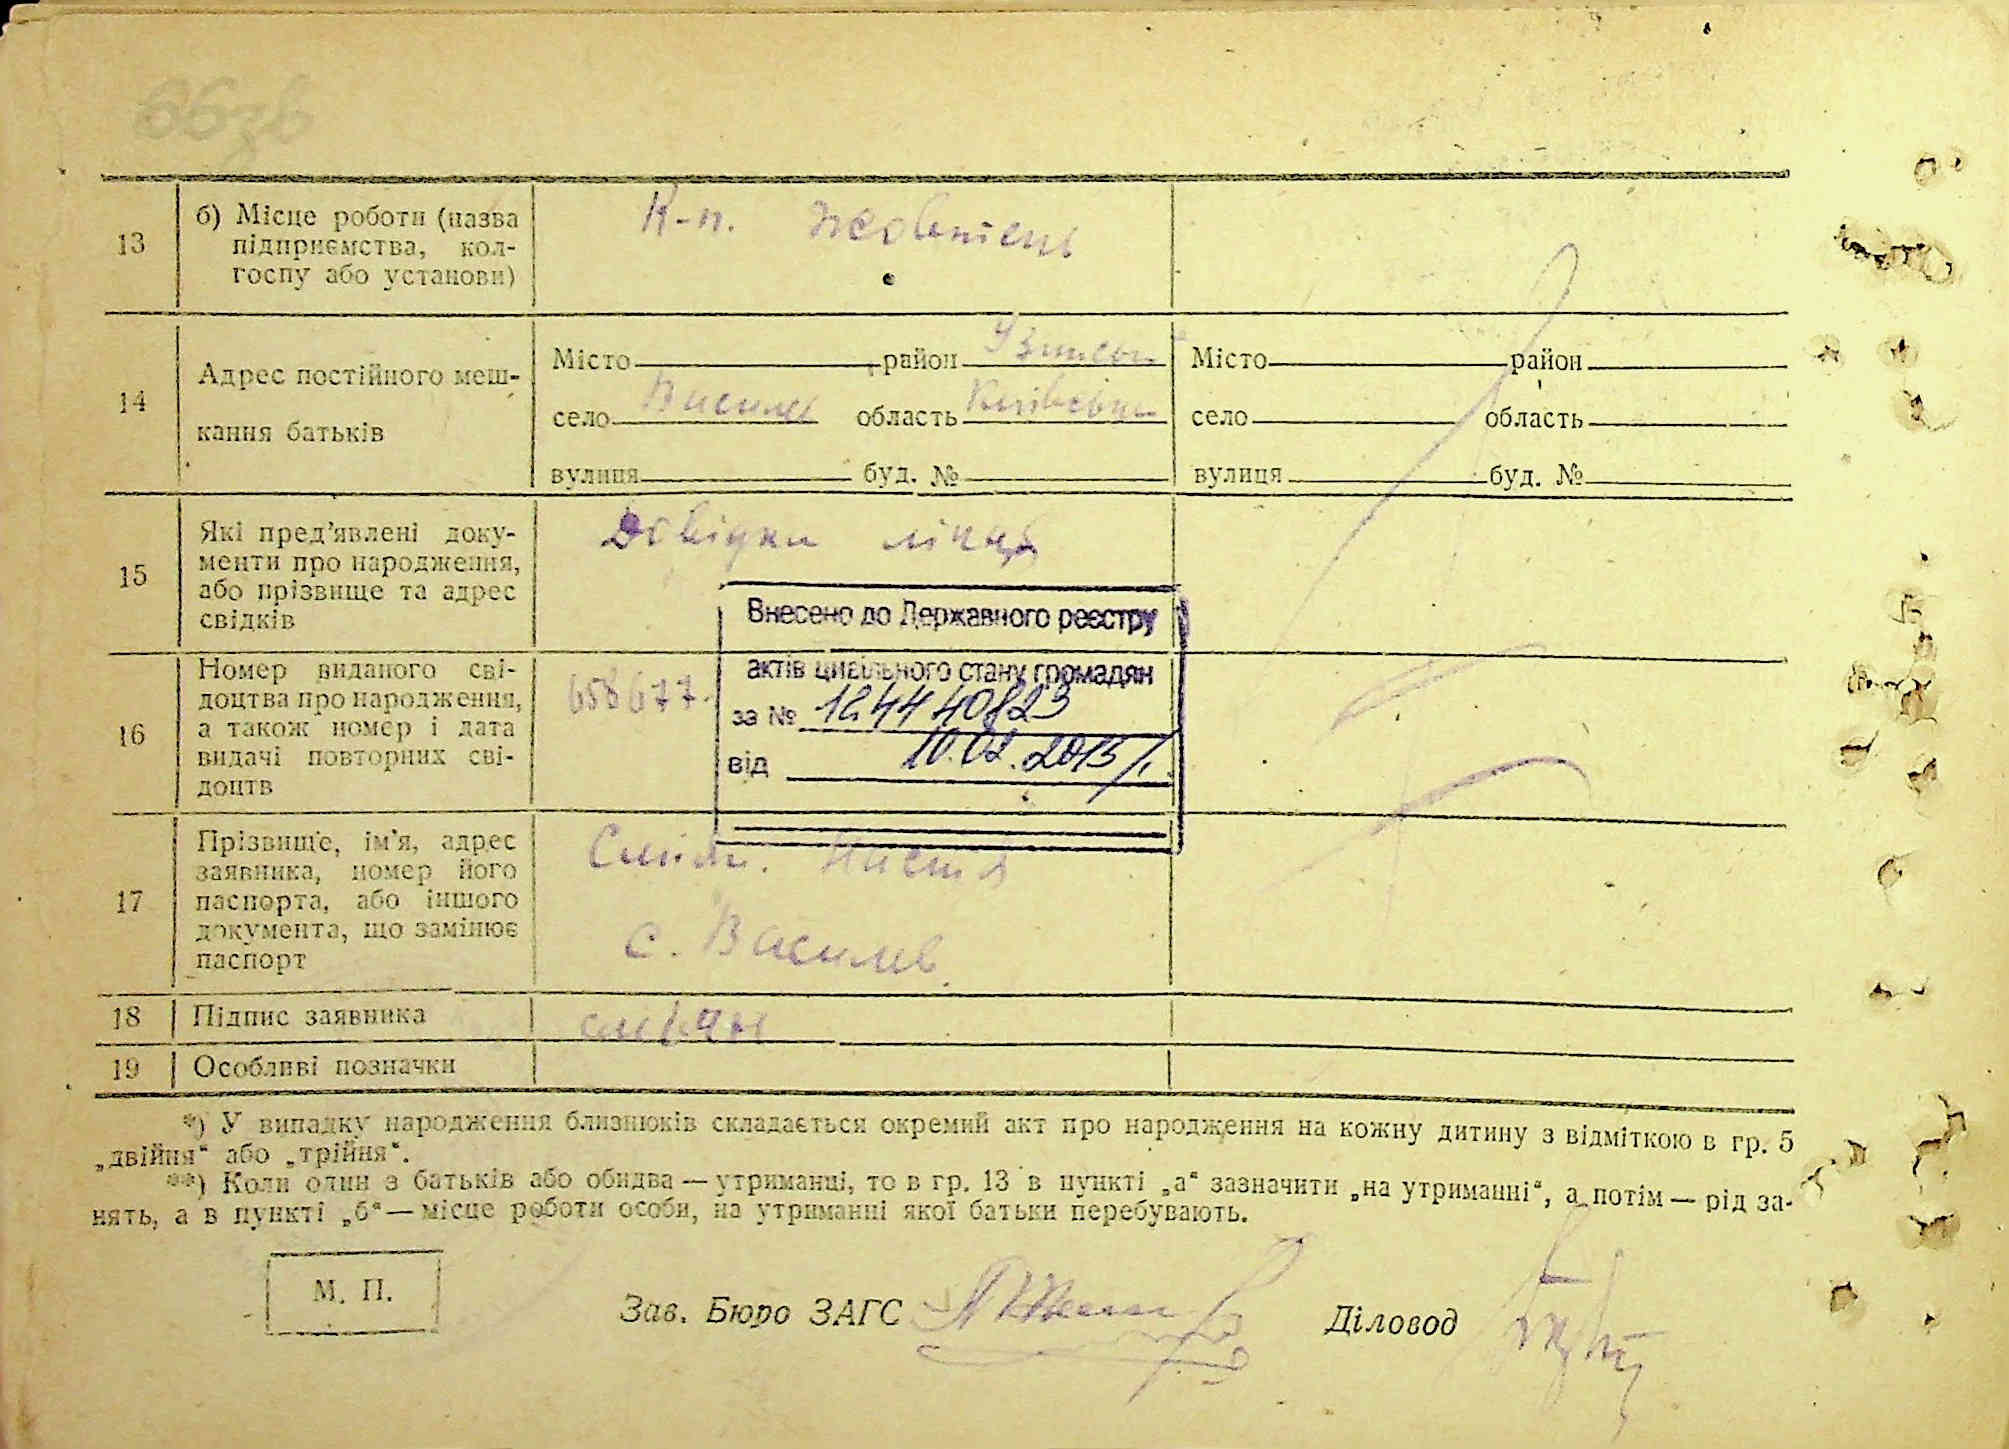 13
б) Місце роботи (назва
підприємства, кол-
госпу або установи)
К-п. Жовтень
14
Адрес постійного меш-
кання батьків
Місто район
село Василів область Київська
вулиця буд. №
Місто район
село область
вулиця буд. №
15
Які пред’явлені доку-
менти про народження,
або прізвище та адрес
свідків
Довідка лікар
16
Номер виданого сві-
доцтва про народження,
а також номер і дата
видачі повторних сві-
доцтв
658677.
Внесено до Державного реєстру
актів цивільного стану громадян
за №
від 10.02.2015
17
Прізвище, ім’я, адрес
заявника, номер його
паспорта, або іншого
документа, що замінює
паспорт
с. Василів
18
Підпис заявника
19
Особливі позначки
*) У випадку народження близнюків складається окремий акт про народження на кожну дитину з відміткою в гр. 5
„двійня“ або „трійня“.
**) Коли один з батьків або обидва — утриманці, то в гр. 13 в пункті „а“ зазначити „на утриманні“, а потім — рід за-
нять, а в пункті „б“ — місце роботи особи, на утриманні якої батьки перебувають.
М. П.
Зав. Бюро ЗАГС
Діловод